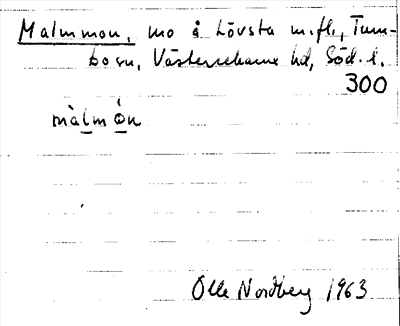 Malmmon, mo å Lövsta m.fl., Tum-
bo sn, Västerrekarne hd, Söd. l.
300
màlmón
Olle Nordberg 1963